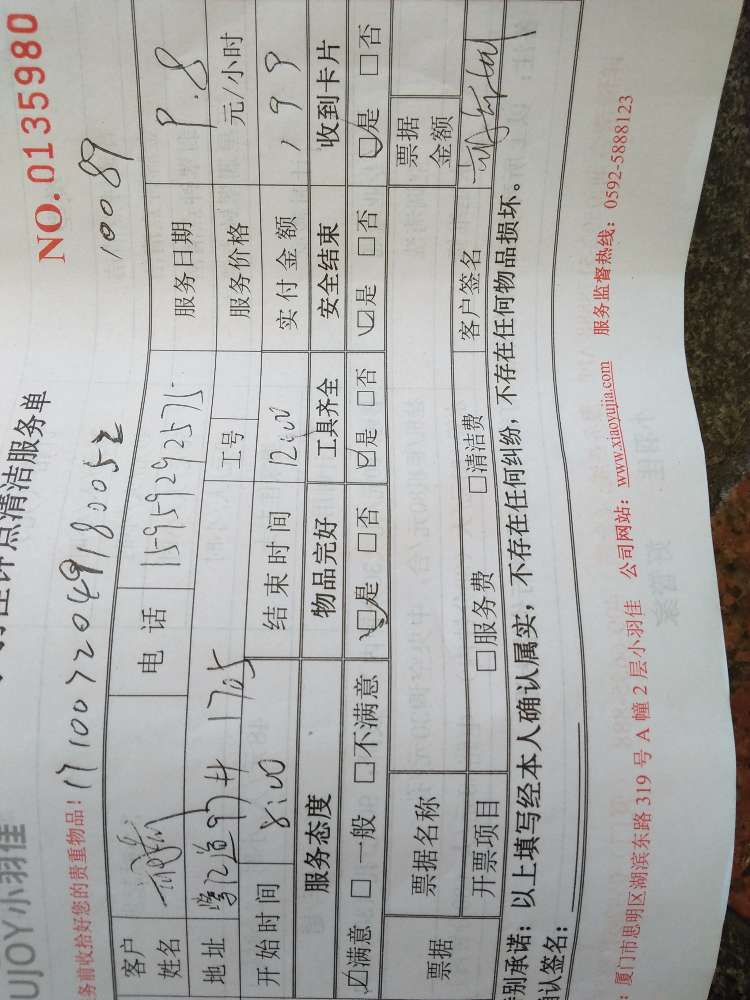 NO.0135980
钟点清洁服务单
UJOY小羽佳
务前收拾好您的贵重物品! 1710072049180052 10089
客户姓名 电话 15959292575 服务日期 9.8
地址 97# 1705 工号 服务价格 元/小时
开始时间 8:00 结束时间 12:00 实付金额 199
服务态度 物品完好 工具齐全 安全结束 收到卡片
☑满意 □一般 □不满意 ☑是 □否 ☑是 □否 ☑是 □否 ☑是 □否
票据 票据名称 票据金额
开票项目 □服务费 □清洁费 客户签名
别承诺：以上填写经本人确认属实，不存在任何纠纷，不存在任何物品损坏。
认签名：
厦门市思明区湖滨东路 319 号 A 幢 2 层小羽佳 公司网站：www.xiaoyujia.com 服务监督热线：0592-5888123